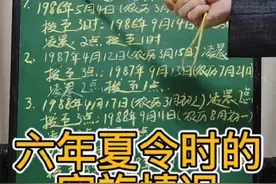 1. 1986年5月4日(农历3月26)凌晨
拨至3时; 1986年9月14日
凌晨2点 拨至1时
2. 1987年4月12日(农历3月15日)凌晨
拨至3点; 1987年9月13日(农历7月21日
凌晨2点 拨至1点
3. 1988年4月 日(农历3月初2)凌晨2点
拨至3点; 1988年9月11日(农历8月初一)
六年夏令时的
实施情况